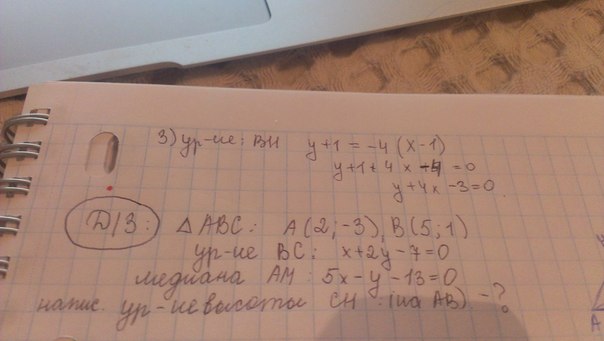 3) ур-ие: BH y+1 = -4 (x-1)
y+1+4x-4 =0
y+4x-3=0.
Д/З: △ABC: A(2;-3), B(5;1)
ур-ие BC: x+2y-7=0
медиана AM: 5x-y-13=0
напис. ур-ие высоты CH (на AB) -?
A